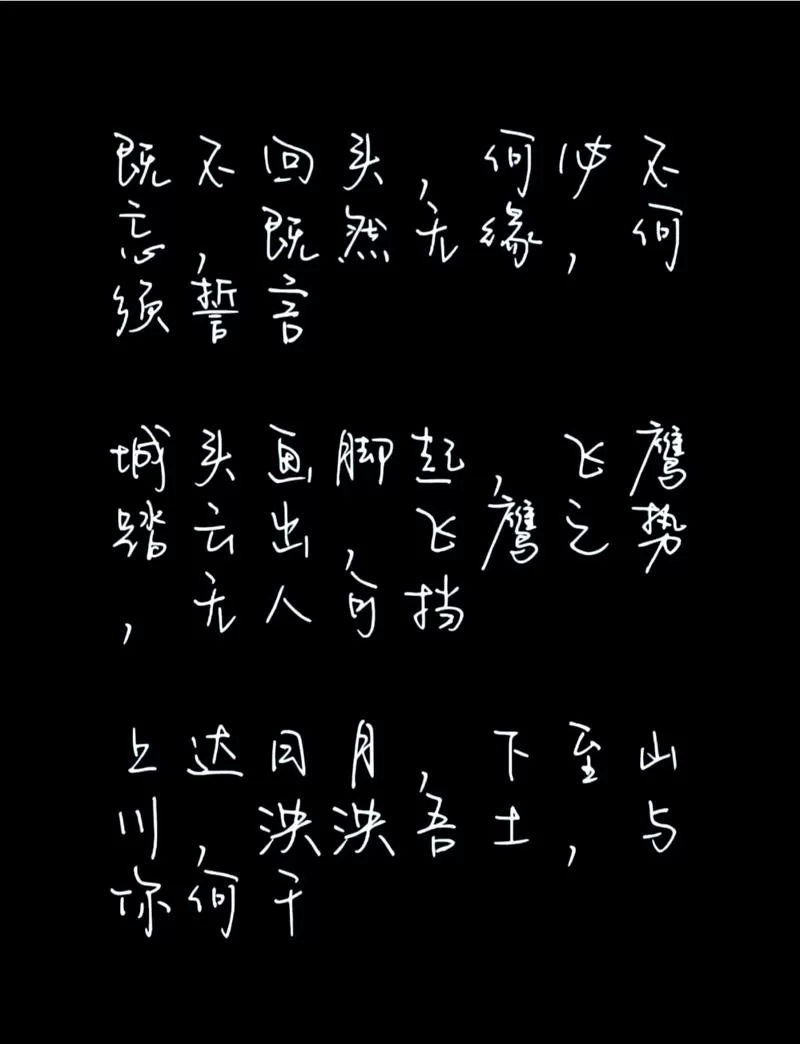 既不回头，何必不
忘，既然无缘，何
须誓言
城头画脚起，飞鹰
踏云出，飞鹰之势
，无人可挡
上达日月，下至山
川，泱泱吾土，与
你何干